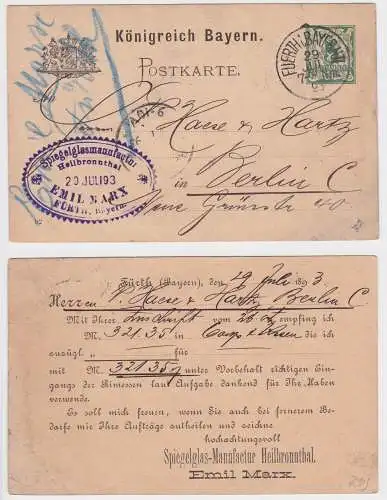 Königreich Bayern.
POSTKARTE.
FUERTH I. BAYERN
Spiegelglasmanufactur
Heilbronnthal
20 JULI 93
EMIL MARX
FÜRTH, Bayern.
Haese & Hartz
in Berlin C
Neue Grünstr 40
Fürth (Bayern), den 19 Juli 1893
Herren P. Haese & Hartz Berlin C.
Mit Ihrer Zuschrift vom empfing ich
M. 321.35 in die ich
auzügl „ für
mit M. 321.35 unter Vorbehalt richtigen Ein-
gangs der Rimessen laut Aufgabe dankend für Ihr Haben
verwende.
Es soll mich freuen, wenn Sie auch bei fernerem Be-
darfe mir Ihre Aufträge zutheilen und zeichne
hochachtungsvoll
Spiegelglas-Manufactur Heilbronnthal.
Emil Marx.